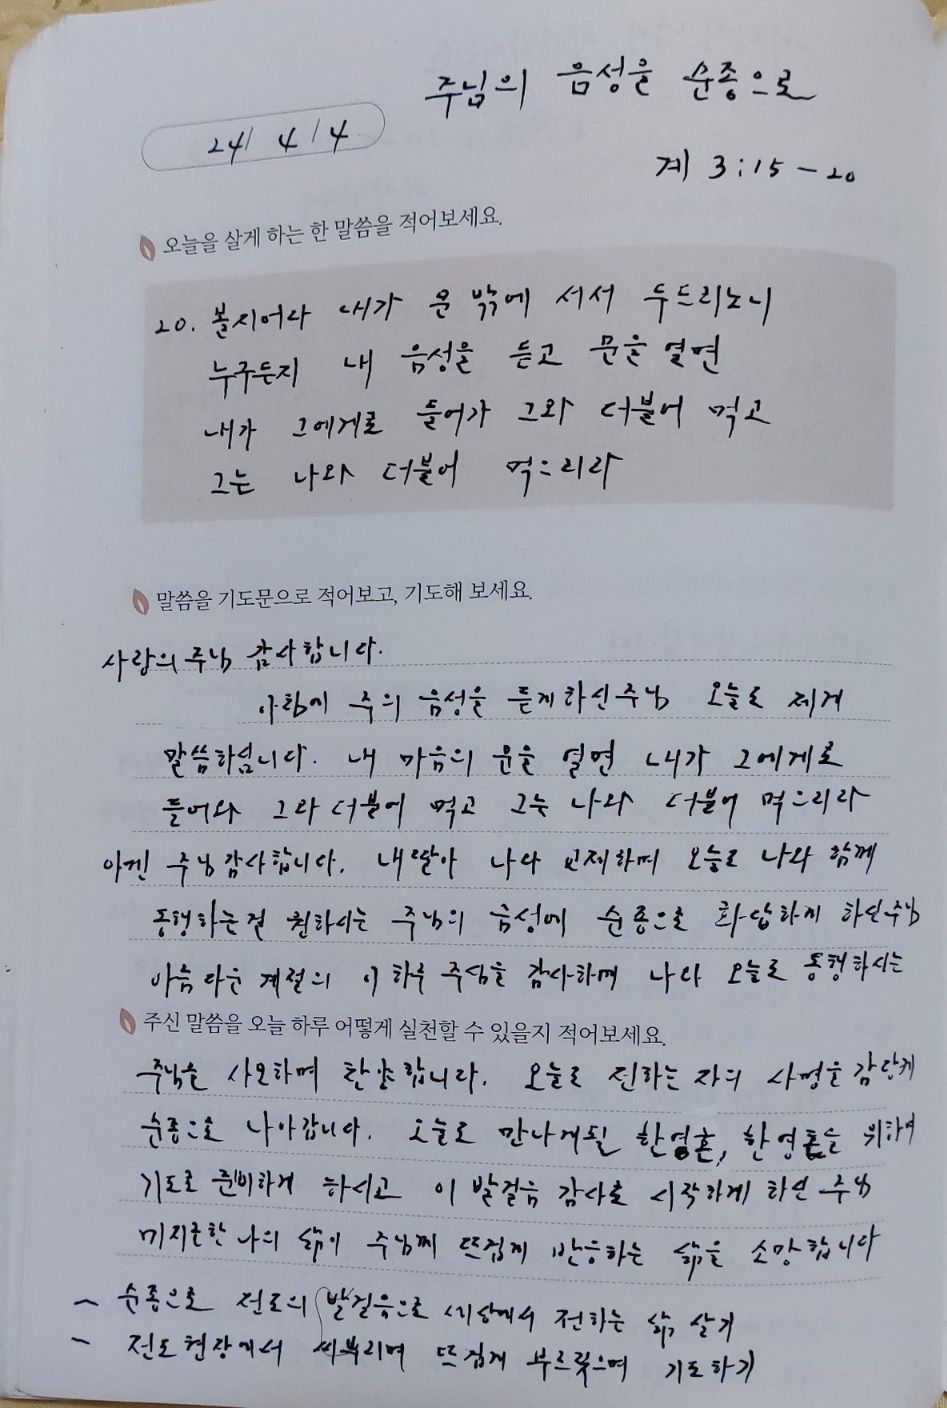 주님의 음성을 순종으로
24/ 4/4
계 3:15-20
오늘을 살게 하는 한 말씀을 적어보세요.
20. 볼지어다 내가 문 밖에 서서 두드리노니
누구든지 내 음성을 듣고 문을 열면
내가 그에게로 들어가 그와 더불어 먹고
그는 나와 더불어 먹으리라
말씀을 기도문으로 적어보고, 기도해 보세요.
사랑의 주님 감사합니다.
아침에 주의 음성을 듣게하신주님 오늘도 제게
말씀하십니다. 내 마음의 문을 열면 내가 그에게로
들어와 그와 더불어 먹고 그는 나와 더불어 먹으리라
아멘 주님감사합니다. 내딸아 나와 교제하며 오늘도 나와 함께
동행하는걸 원하시는 주님의 음성에 순종으로 화답하게 하신주님
아름다운 계절의 이 하루 주심을 감사하며 나와 오늘도 동행하시는
주신 말씀을 오늘 하루 어떻게 실천할 수 있을지 적어보세요.
주님을 사모하며 찬양합니다. 오늘도 전하는 자의 사명을 감당케
순종으로 나아갑니다. 오늘도 만나게될 한영혼, 한영혼을 위하여
기도로 준비하게 하시고 이 발걸음 감사로 시작하게 하신 주님
미지근한 나의 삶이 주님께 뜨겁게 반응하는 삶을 소망합니다
- 순종으로 전도의 발걸음으로 세상에서 전하는 삶 살기
- 전도현장에서 씨뿌리며 뜨겁게 부르짖으며 기도하기